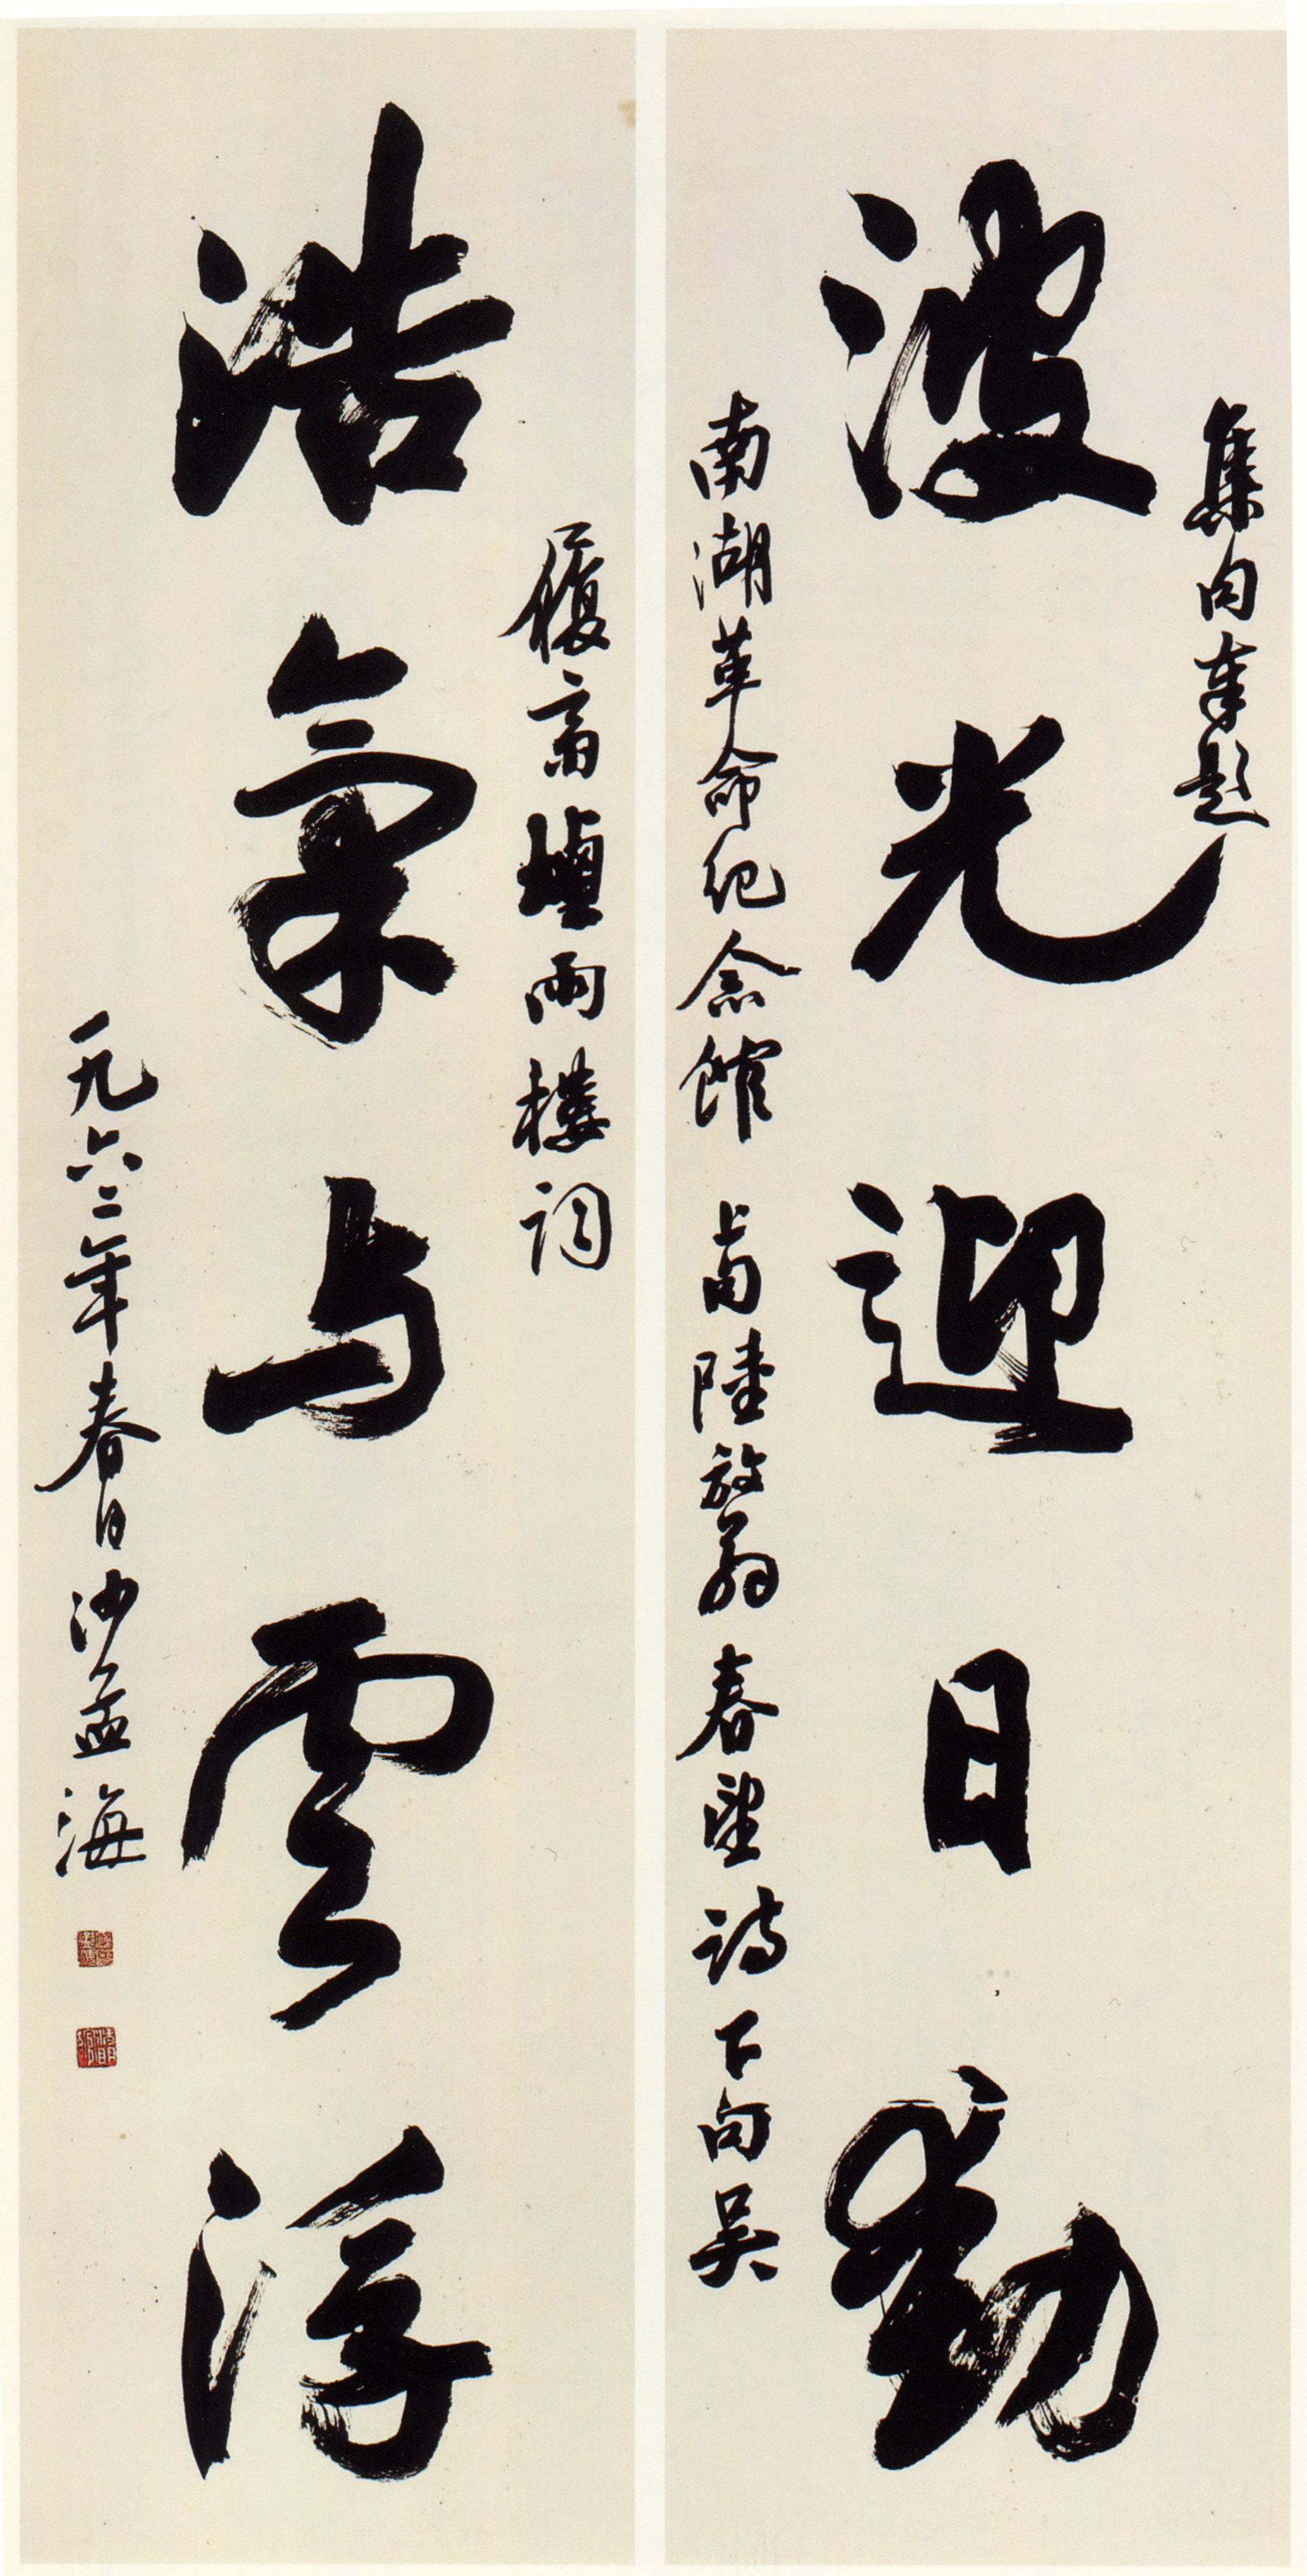 集句奉題
波光迎日動
南湖革命紀念館 上句陸放翁春望詩下句吳
履齋煙雨樓詞
浩氣与雲浮
一九六二年春日沙孟海